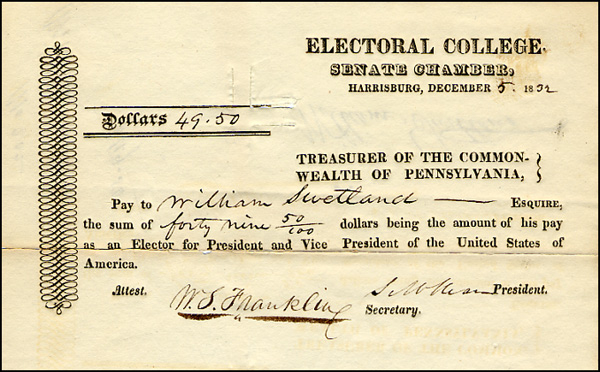 ELECTORAL COLLEGE.
SENATE CHAMBER,
HARRISBURG, DECEMBER 5. 1832
Dollars 49.50
TREASURER OF THE COMMON-
WEALTH OF PENNSYLVANIA,
Pay to William Swetland ESQUIRE,
the sum of forty nine 50/100 dollars being the amount of his pay
as an Elector for President and Vice President of the United States of
America.
Attest. W. S. Franklin President.
Secretary.